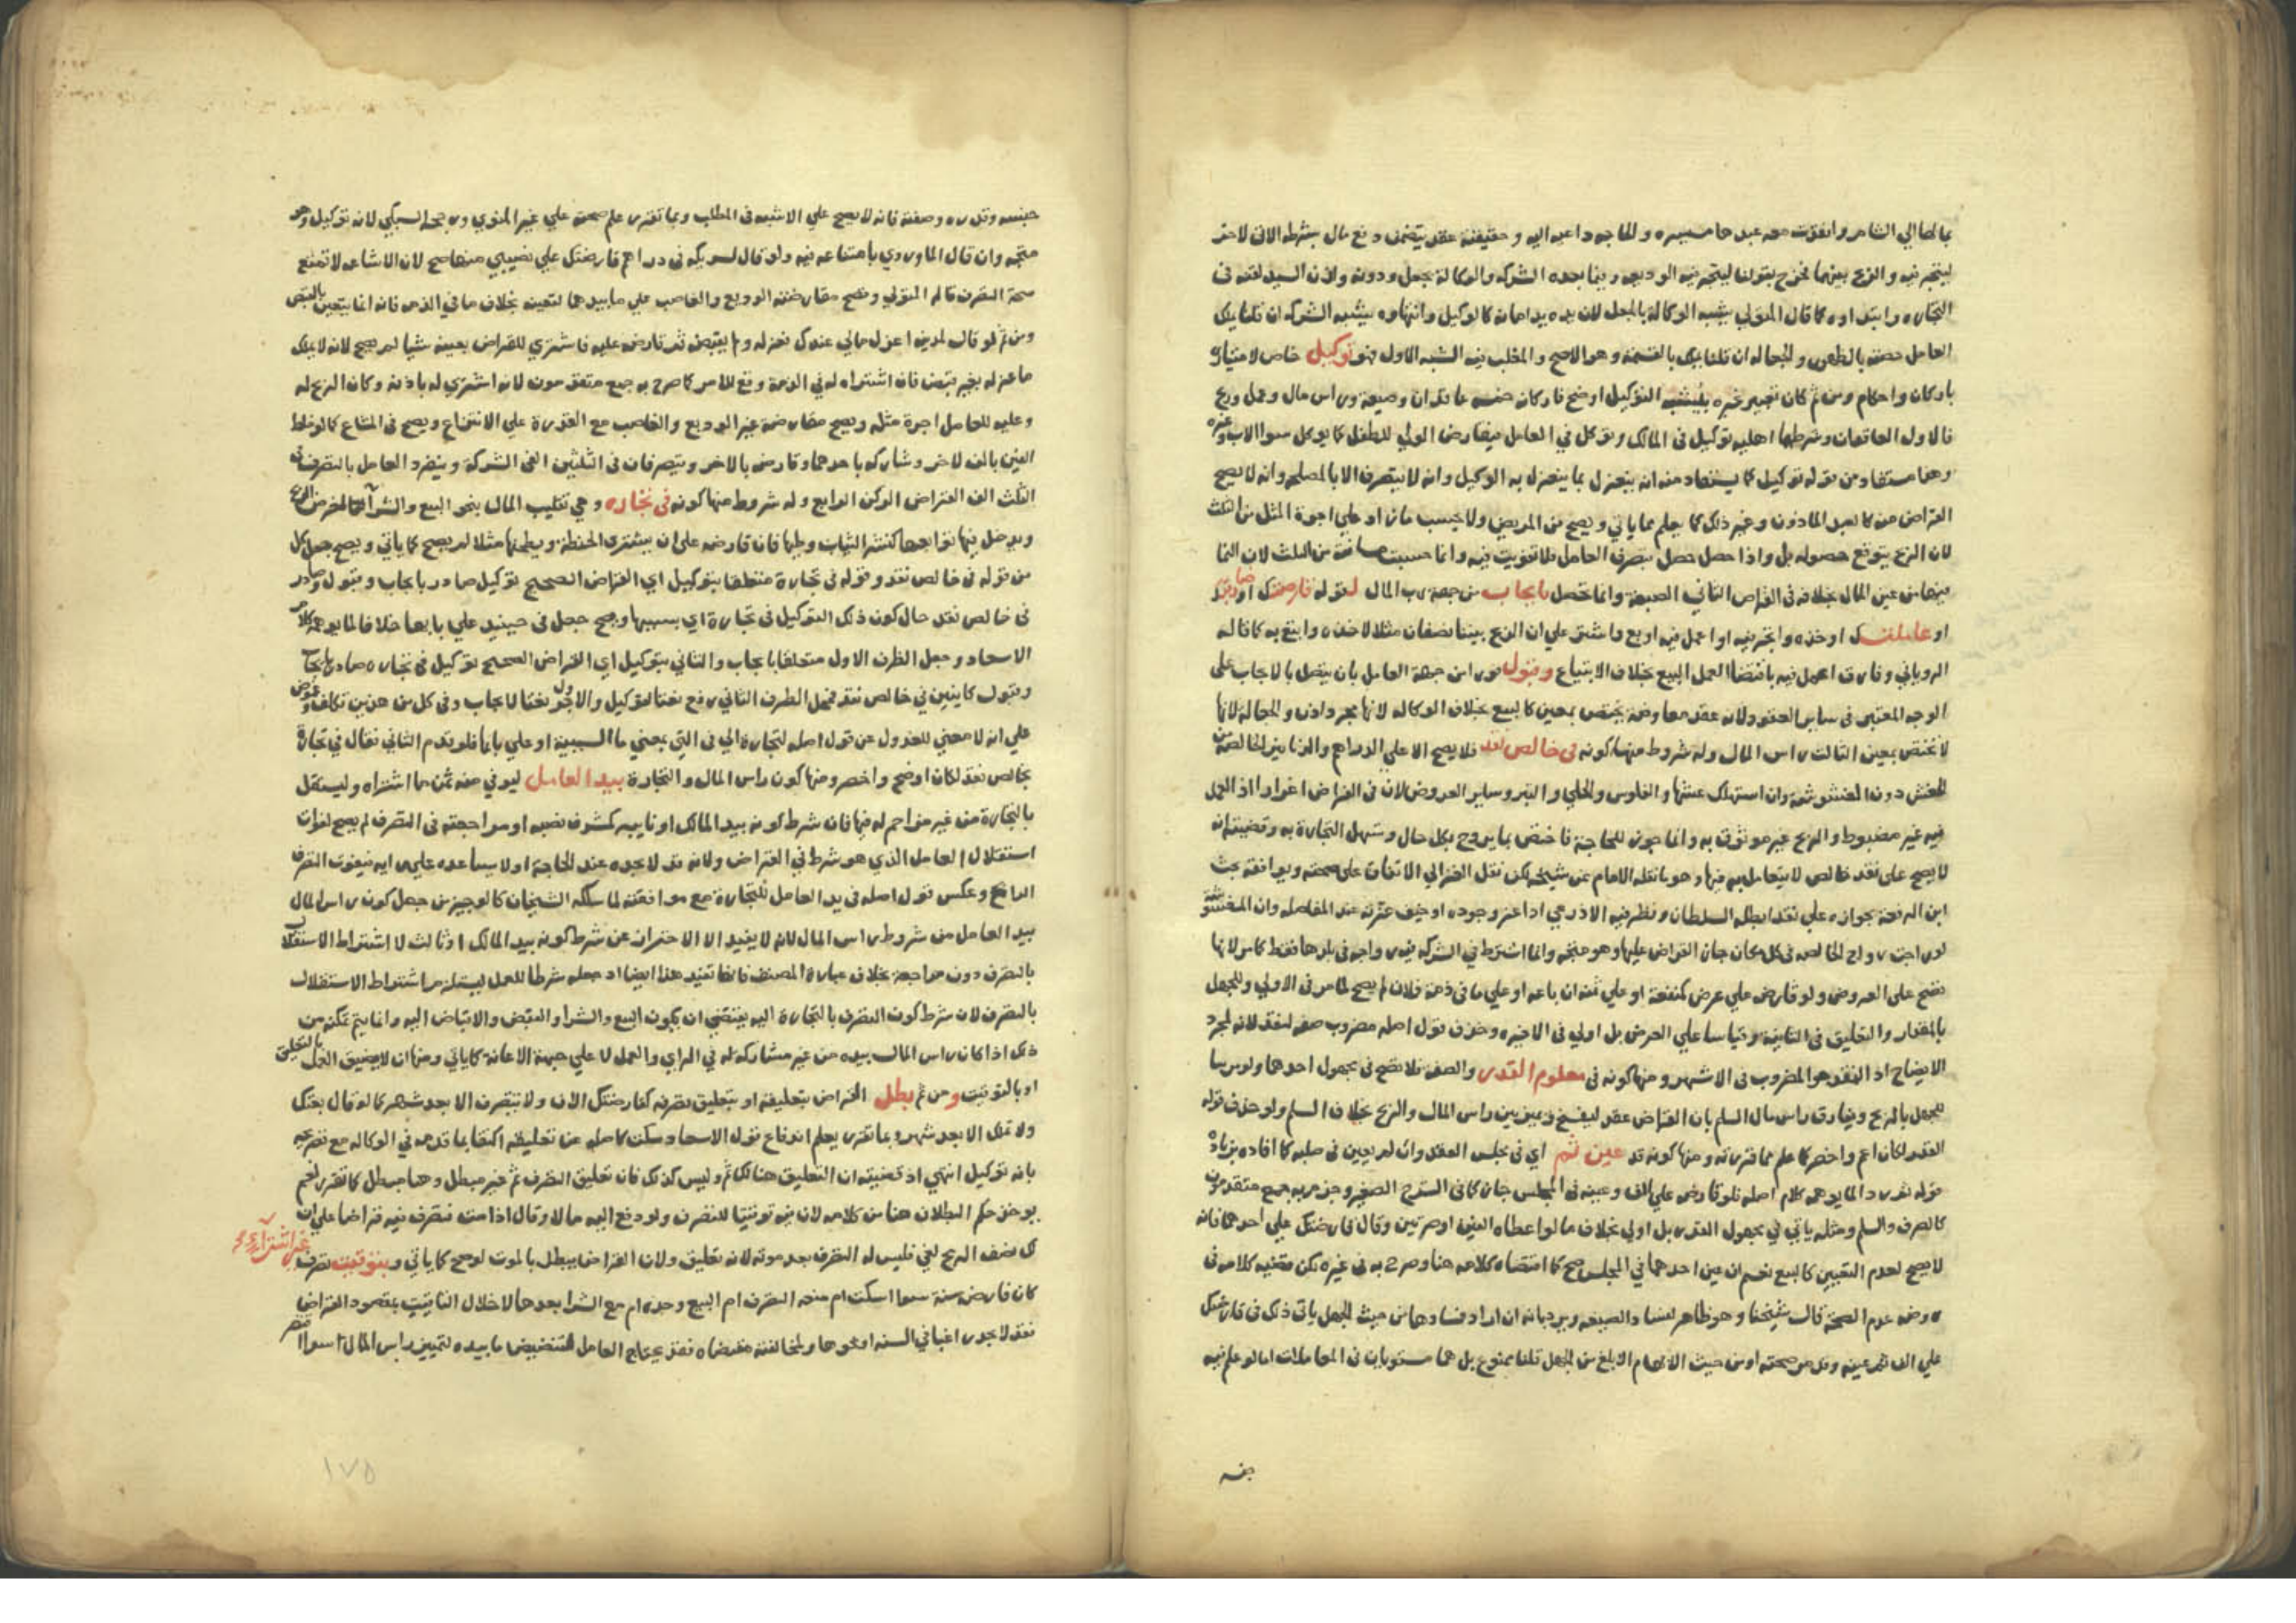 بمالها الي الشام وانفذت معه عبدها ميسره والحاجه داعيه اليه وحقيقته عقد يتضمن دفع مال بشرطه الاتي لاخر
ليتجر فيه والربح بينهما فخرج بقولنا ليتجر فيه الوديعه وبما بعده الشركه والوكالة بجعل ودونه واذن السيد لقنه في
التجاره وابتداوه كما قال المتولي يشبه الوكالة بالجعل لان يده يد امانه كالوكيل وانتهاوه يشبه الشركه ان قلنا يملك
العامل حصته بالظهور والجعاله ان قلنا يملك بالقسمة وهو الاصح والمغلب فيه الشبه الاول فهو توكيل خاص لامتيازه
باركان واحكام ومن ثم كان تعبير غيره التوكيل اوضح فاركانه خمسه عاقدان وصيغة وراس مال وعمل وربح
فالاول العاقدان وشرطهما اهليه توكيل في المالك وتوكل في العامل فيقارض الولي للطفل كما يوكل سوا الاب وغيره
وهذا مستفاد من قوله توكيل كما يستفاد منه انه ينعزل بما ينعزل به الوكيل وانه لا يتصرف الا بالمصلحه وانه لا يصح
القراض من كالعبد الماذون وغير ذلك كما يعلم مما ياتي ويصح من المريض ولا يحسب ما زاد علي اجرة المثل من الثلث
لان الربح يتوقع حصوله بل واذا حصل حصل بتصرف العامل فلا تفويت فيه وانما حسبت مساقاته من الثلث لان النما
فيها من عين المال بخلافه في القراض الثاني الصيغة وانما تحصل بايجاب من جهة رب المال لقوله قارضتك او ضاربتك
او عاملتك او خذه واتجر فيه او اعمل فيه او بع واشتر علي ان الربح بيننا نصفان مثلا لا خذه وابتع به كما قاله
الروياني وفارق اعمل فيه باقتضا العمل البيع بخلاف الابتياع وقبول فورا من جهة العامل بان يتصل بالايجاب علي
الوجه المعتبر في ساير العقود لانه عقد معاوضة يختص بمعين كالبيع بخلاف الوكاله لانها مجرد اذن والجعاله لانها
لا تختص بمعين الثالث راس المال وله شروط منها كونه في خالص نقد فلا يصح الا علي الدراهم والدنانير الخالصة من
الغش دون المغشوشة وان استهلك غشها والفلوس والحلي والتبر وساير العروض لان في القراض اغرارا اذ العمل
فيه غير مضبوط والربح غير موثوق به وانما جوز للحاجة فاختص بما يروج بكل حال وتسهل التجارة به وقضيته انه
لا يصح علي نقد خالص لا يتعامل به فيها وهو ما نقله الامام عن شيخه لكن نقل الغزالي الاتفاق علي صحته ويوافقه بحث
ابن الرفعة بجوازه علي نقد ابطله السلطان ونظر فيه الاذرعي اذا عز وجوده او خيف عزته عند المفاصله وان المغشوشة
لو راجت رواج الخالصه في كل مكان جاز القراض عليها وهو متجه وانما اشترط في الشركه رواجه في بلدها فقط كامر لانها
تصح علي العروض ولو قارض علي عرض كمنفعة او علي ثمنه ان باعه او علي ما في ذمة فلان لم يصح لما مر في الاولي وللجهل
بالمقدار والتعليق في الثانية وقياسا علي العرض بل اولي في الاخيره وحذف قول اصله مضروب صفه لنقد لانه لمجرد
الايضاح اذ النقد هو المضروب في الاشهر ومنها كونه في معلوم القدر والصفه فلا تصح في مجهول احدهما ولو مريبا
للجهل بالربح وفارق راس مال السلم بان القراض عقد ليفسخ ويميز بين راس المال والربح بخلاف السلم ولو حذف قوله
القدر لكان اعم واخصر كما علم مما قررته ومنها كونه قد عين ثم اي في مجلس العقد وان لم يعين في صلبه كما افاده بزيادة
قوله ثم ردا لما يوهمه كلام اصله فلو قارض علي الف وعينه في المجلس جاز كما في الشرح الصغير وجزم به جمع متقدمون
كالصرف والسلم ومثله ياتي في مجهول القدر بل اولي بخلاف ما لو اعطاه الفين او صرتين وقال قارضتك علي احدهما فانه
لا يصح لعدم التعيين كالبيع نعم ان عين احدهما في المجلس صح كما اقتضاه كلامه هنا وصرح به في غيره لكن مقتضي كلامه في
وضه عدم الصحة قال شيخنا وهو ظاهر لفساد الصيغه ويرد بانه ان اراد فسادها من حيث الجهل ياتي ذلك في قارضتك
علي الف ثم عينه وقد مر صحته او من حيث الابهام الابلغ من الجهل قلنا ممنوع بل هما مستويان في المعاملات اما لو علم فيه
جنسه
جنسه وقدره وصفته فانه لا يصح علي الاشبه في المطلب وبما تقرر علم صحته علي غير المنوي ورجحه السبكي لانه توكيل وهو
متجه وان قال الماوردي بامتناعه فيه ولو قال لشريكه في دراهم قارضتك علي نصيبي منها صح لان الاشاعه لا تمنع
صحة التصرف قاله المتولي وتصح مقارضته الوديع والغاصب علي ما بيدهما لتعينه بخلاف ما في الذمه فانه انما يتعين بالقبض
ومن ثم لو قال لمدين اعزل مالي عندك فعزله ولم يقبضه ثم قارضه عليه فاشتري للقراض بعينه شيا لم يصح لانه لا يملك
ما عزله بغير قبض فان اشتراه له في الذمة وقع للامر كما صرح به جمع متفقهون لانه اشتري له باذنه وكان الربح له
وعليه للعامل اجرة مثله ويصح مقارضة غير الوديع والغاصب مع القدرة علي الانتزاع ويصح في المشاع كما لو خلط
الفين بالف لاخر وشاركه باحدهما وقارضه بالاخر ويتصرفان في الثلثين الفي الشركة وينفرد العامل بالتصرف في
الثلث الف القراض الركن الرابع وله شروط منها كونه في تجاره وهي تقليب المال بنحو البيع والشرا لغرض الربح
ويدخل فيها توابعها كنشر الثياب وطيها فان قارضه علي ان يشتري الحنطة ويطحنها مثلا لم يصح كما ياتي ويصح جعل كل
من قوله في خالص نقد وقوله في تجارة متعلقا بتوكيل اي القراض الصحيح توكيل صادر بايجاب وقبول وصادر
في خالص نقد حال كون ذلك التوكيل في تجارة اي بسببها ويصح جعل في حينيذ علي بابها خلافا لما يوهمه كلام
الاسعاد وجعل الظرف الاول متعلقا بايجاب والثاني بتوكيل اي القراض الصحيح توكيل في تجاره صادر بايجاب
وقبول كاينين في خالص نقد فجعل الظرف الثاني رفع نعتا لتوكيل والاول جر نعتا لايجاب وفي كل من هذين تكلف وغموض
علي انه لا معني للعدول عن قول اصله لتجارة الي في التي بمعني ما السببية او علي بابها فلو قدم الثاني فقال في تجارة
بخالص نقد لكان اوضح واخصر ومنها كون راس المال والتجارة بيد العامل ليوفي منه ثمن ما اشتراه وليستقل
بالتجارة من غير مزاحم له فيها فان شرط كونه بيد المالك او نايبه كمشرف نصبه او مراجعته في التصرف لم يصح لفوات
استقلال العامل الذي هو شرط في القراض ولانه قد لا يجده عند الحاجة او لا يساعده علي رايه فيفوت التصرف
الرابح وعكس قول اصله في يد العامل للتجارة مع موافقته لما سلكه الشيخان كالوجيز من جعل كون راس المال
بيد العامل من شروط راس المال لانه لا يفيد الا الاحتراز عن شرط كونه بيد المالك او ثالث لا اشتراط الاستقلال
بالتصرف دون مراجعة بخلاف عبارة المصنف فانها تفيد هذا ايضا اذ جعله شرطا للعمل يستلزم اشتراط الاستقلال
بالتصرف لان شرط كون التصرف بالتجارة اليه يقتضي ان يكون البيع والشرا والقبض والاقباض اليه وانما يتم تمكنه من
ذلك اذا كان راس المال بيده من غير مشاركة له في الراي والعمل لا علي جهة الاعانة كما ياتي ومنها ان لا يضيق العمل بالتعليق
او بالتوقيت ومن ثم بطل القراض بتعليقه او بتعليق تصرفه كقارضتك الان ولا تتصرف الا بعد شهر كما لو قال بعتك
ولا تملك الا بعد شهر وبما تقرر يعلم اندفاع قول الاسعاد سكت كاصله عن تعليقه اكتفا بما قدمه في الوكاله مع تصريحه
بانه توكيل انتهي اذ قضيته ان التعليق هنا كذلك ثم وليس كذلك فان تعليق التصرف ثم غير مبطل وهنا مبطل كما تقرر نعم
يوخذ حكم البطلان هنا من كلامه لان فيه توقيتا للتصرف ولو دفع اليه مالا وقال اذا مت فتصرف فيه قراضا علي ان
لك نصف الربح لغي فليس له التصرف بعد موته لانه تعليق ولان القراض يبطل بالموت لو صح كما ياتي وبتوقيت تصرف غير اشتراء
كان قارض سنة سوا اسكت ام منعه التصرف ام البيع وحده ام مع الشرا بعدها لاخلال التاقيت بمقصود القراض
فقد لا يجد راغبا في السنه او نحوها ولمخالفته مقتضاه فقد يحتاج العامل لتنضيض ما بيده لتمييز راس المال سوا
١٧٥